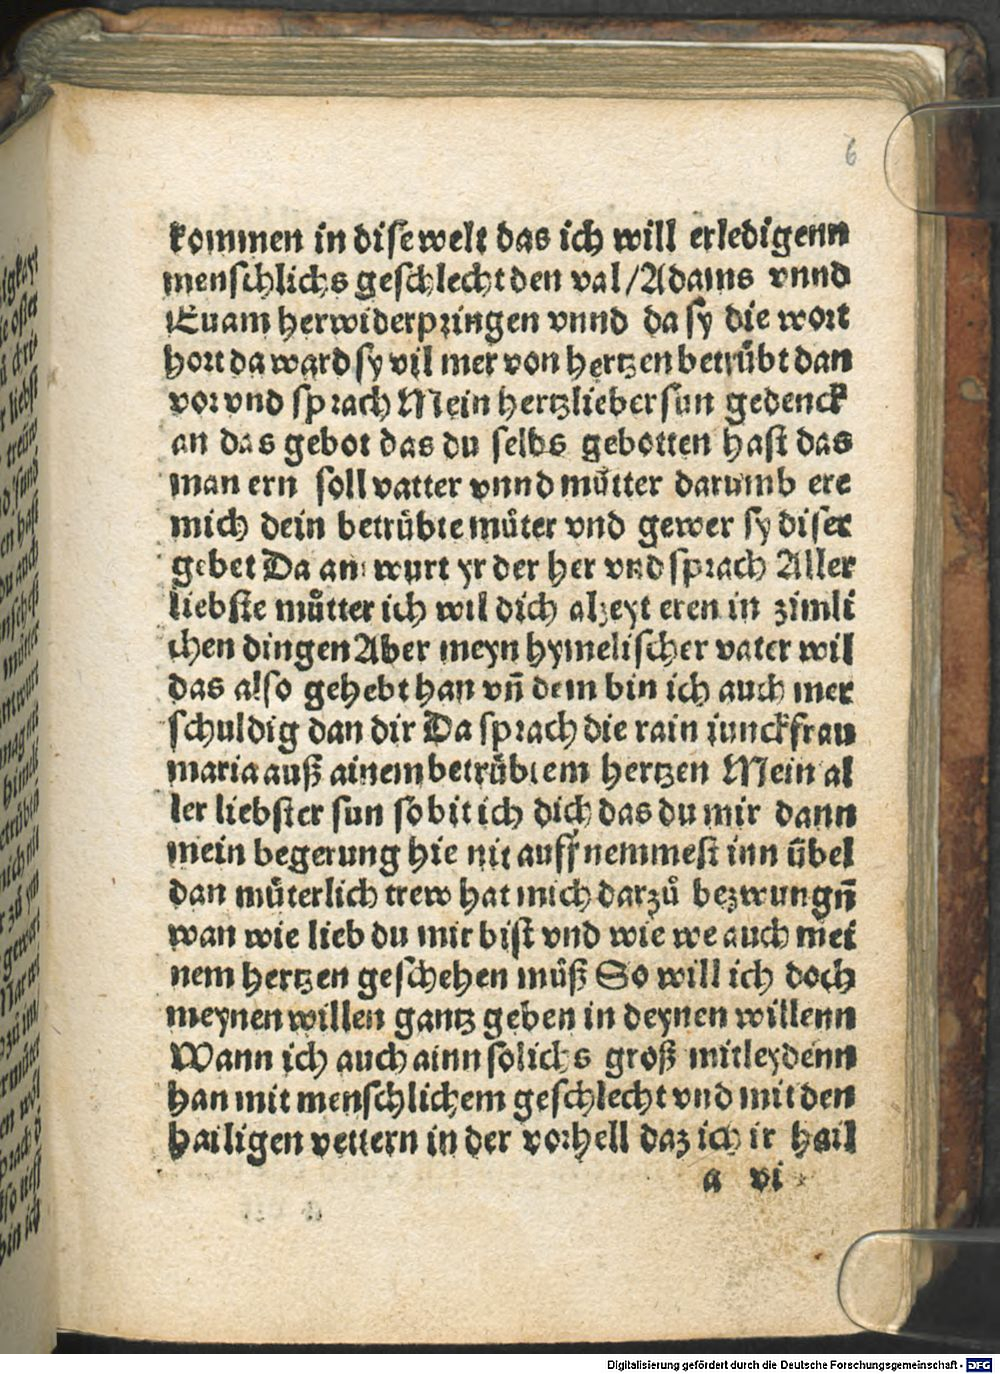 6
kommen in dise welt das ich will erledigenn
menschlichs geschlecht den val/Adams vnnd
Euam herwiderpringen vnnd da sy die wort
hort da ward sy vil mer von hertzen betrübt dan
vor vnd sprach Mein hertzlieber sun gedenck
an das gebot das du selbs gebotten hast das
man ern soll vatter vnnd můtter darumb ere
mich dein betrübte můter vnd gewer sy diser
gebet Da antwurt yr der her vnd sprach Aller
liebste můtter ich wil dich alzeyt eren in zimli
chen dingen Aber meyn hymelischer vater wil
das also gehebt han vn̄ dem bin ich auch mer
schuldig dan dir Da sprach die rain junckfrau
maria auß ainem betrübtem hertzen Mein al
ler liebster sun so bit ich dich das du mir dann
mein begerung hie nit auff nemmest inn übel
dan müterlich trew hat mich darzů bezwungn̄
wan wie lieb du mir bist vnd wie we auch mei
nem hertzen geschehen můß So will ich doch
meynen willen gantz geben in deynen willenn
Wann ich auch ainn solichs groß mitleydenn
han mit menschlichem geschlecht vnd mit den
hailigen vettern in der vorhell daz ich ir hail
a vi
Digitalisierung gefördert durch die Deutsche Forschungsgemeinschaft - DFG